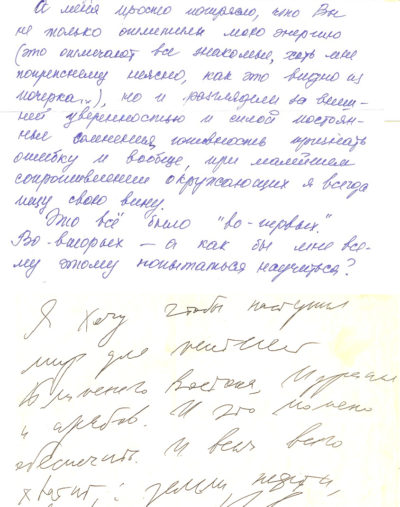 А меня просто потрясло, что Вы
не только отметили мою энергию
(это отмечают все знакомые, хоть мне
попрежнему неясно, как это видно из
почерка...), но и разглядели за внеш-
ней уверенностью и силой постоян-
ные сомнения, готовность признать
ошибку и вообще, при малейшем
сопротивлении окружающих я всегда
ищу свою вину.
Это всё было "во-первых".
Во-вторых – а как бы мне все-
му этому попытаться научиться?
Я хочу чтобы наступил
мир для
Ближнего Востока, Израиля
и арабов. И это можно
обеспечить. И ведь всего
хватит, : земли, нефти,